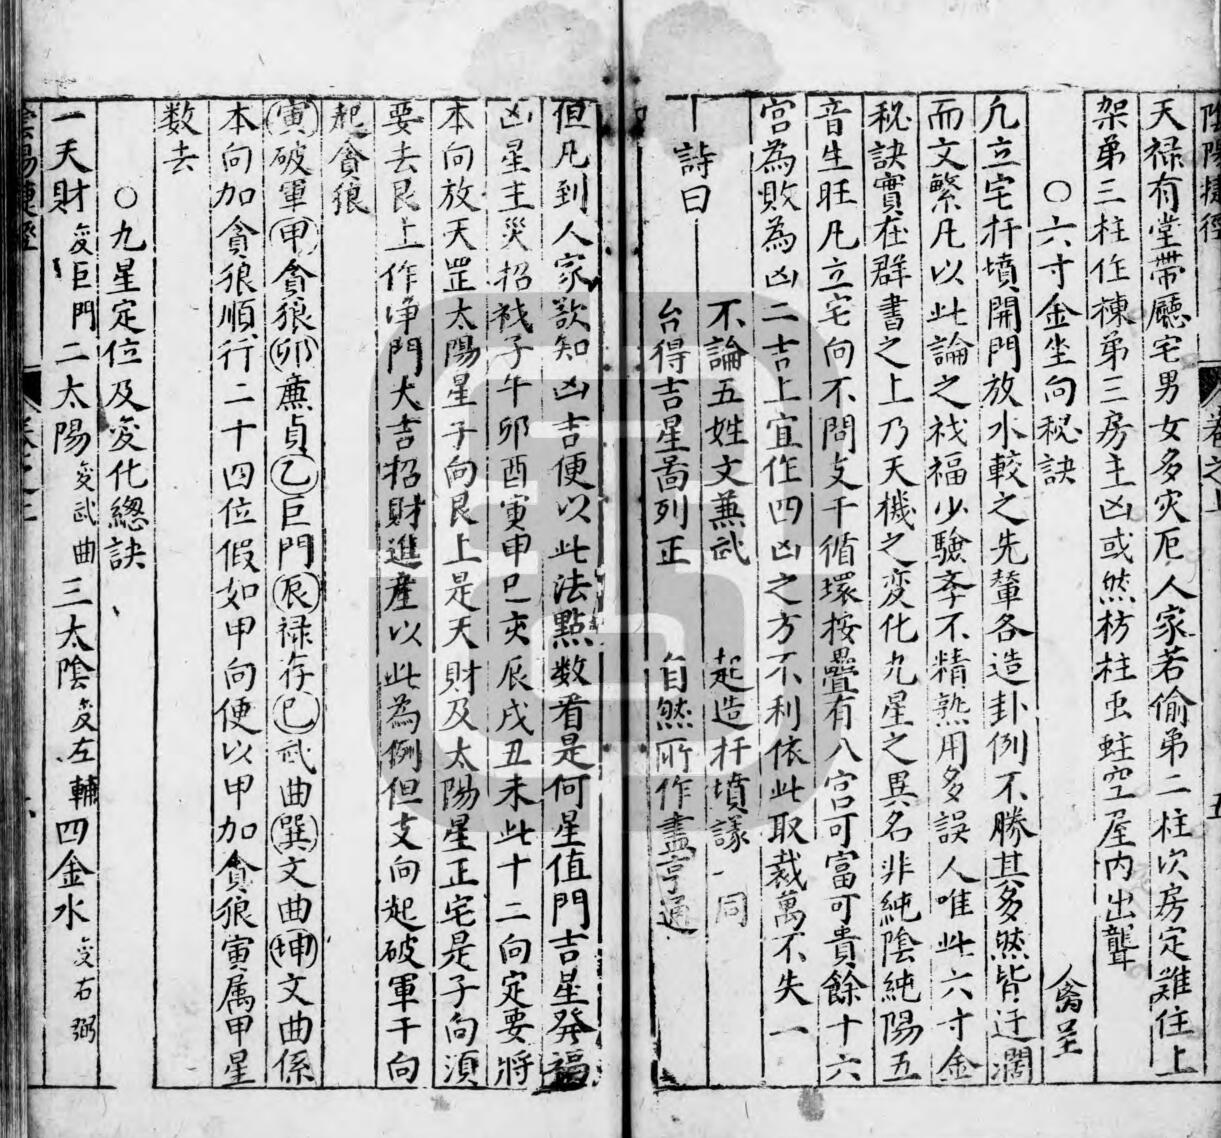 陰陽捷徑 卷之上 五
天禄有堂帶廳宅男女多灾厄人家若偷弟二柱次房定難住上
架弟三柱作棟弟三房主凶或然枋柱虫蛀空屋内出聾
○六寸金坐向秘訣
凢立宅扞墳開門放水較之先輦各造卦例不勝其多然皆迂濶
而文繁凢以此論之衬福少驗李不精熟用多誤人唯此六寸金
秘訣實在群書之上乃天機之变化九星之異名非純陰純陽五
音生旺凢立宅向不問支干循環桉疊有八宫可富可貴餘十六
宫為敗為凶二吉上宜作四凶之方不利依此取裁萬不失一
詩曰 不論五姓文兼武 起造扞墳㨾一同
台得吉星昺列正 自然所作盡亨通
但凡到人家欲知凶吉便以此法點数看是何星值門吉星發福
凶星主災招衬子午卯酉寅申巳亥辰戌丑未此十二向定要將
本向放天罡太陽星子向艮上是天財及太陽星正宅是子向湏
要去艮上作净門大吉招財進產以此為例但支向起破軍干向
起貪狼
寅破軍甲貪狼卯㢘貞乙巨門辰禄存巳武曲巽文曲坤文曲係
本向加貪狼順行二十四位假如甲向便以甲加貪狼寅属甲星
数去
○九星定位及变化總訣
一天財变巨門二太陽变武曲三太陰变左輔四金水变右弼